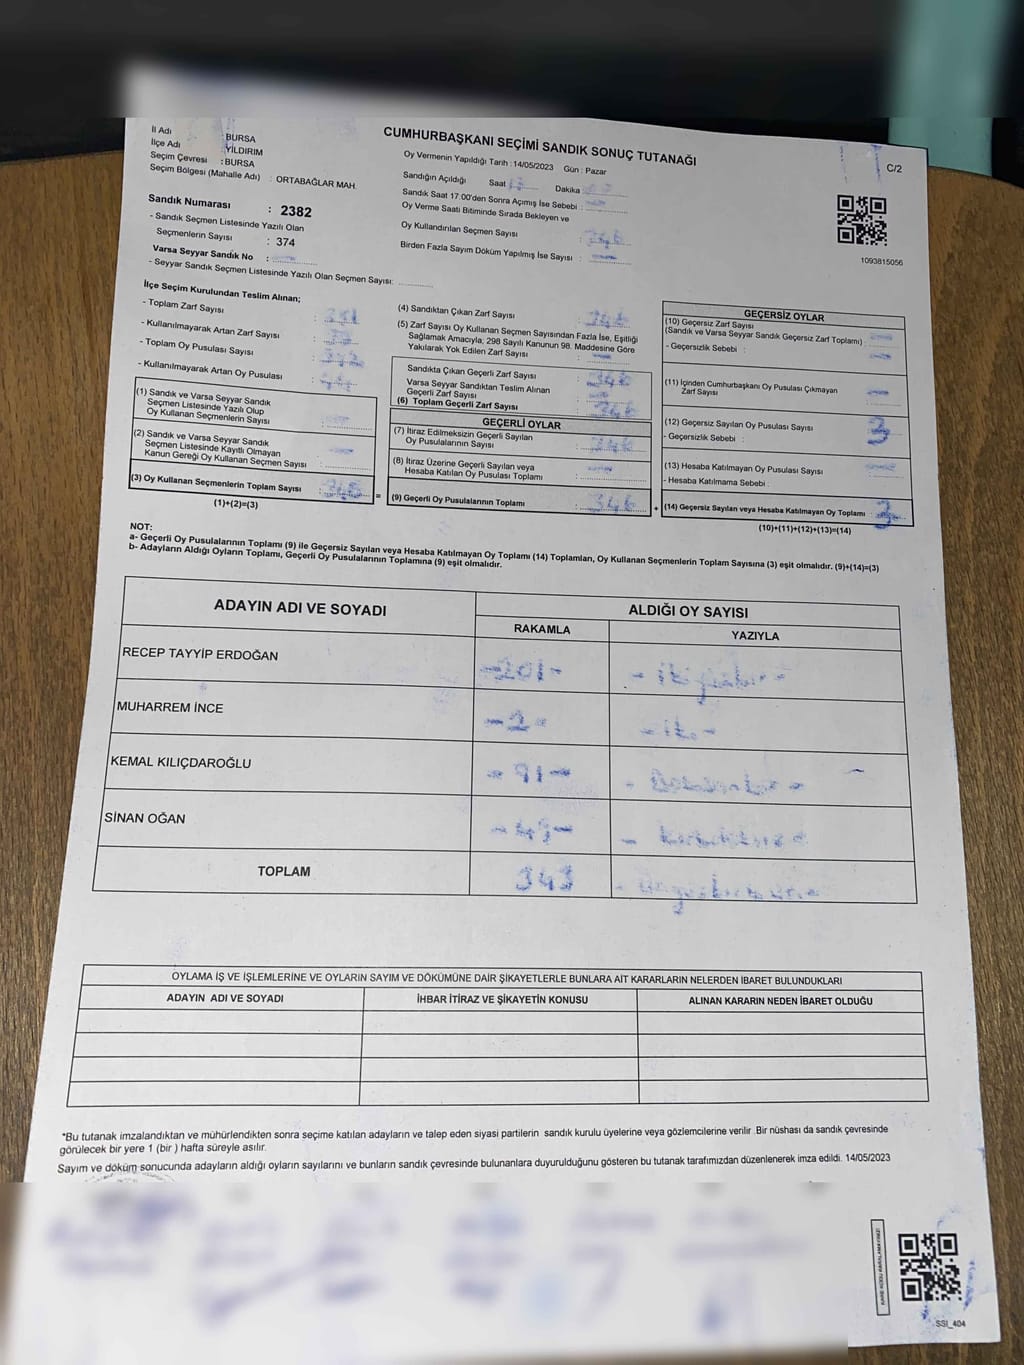 CUMHURBAŞKANI SEÇİMİ SANDIK SONUÇ TUTANAĞI
C/2
İl Adı : BURSA
İlçe Adı : YILDIRIM
Seçim Çevresi : BURSA
Seçim Bölgesi (Mahalle Adı) : ORTABAĞLAR MAH.
Sandık Numarası : 2382
- Sandık Seçmen Listesinde Yazılı Olan
Seçmenlerin Sayısı : 374
Varsa Seyyar Sandık No :
- Seyyar Sandık Seçmen Listesinde Yazılı Olan Seçmen Sayısı:
Oy Vermenin Yapıldığı Tarih : 14/05/2023 Gün : Pazar
Sandığın Açıldığı Saat Dakika
Sandık Saat 17:00'den Sonra Açımış İse Sebebi :
Oy Verme Saati Bitiminde Sırada Bekleyen ve
Oy Kullandırılan Seçmen Sayısı :
Birden Fazla Sayım Döküm Yapılmış İse Sayısı :
1093815056
İlçe Seçim Kurulundan Teslim Alınan;
- Toplam Zarf Sayısı :
- Kullanılmayarak Artan Zarf Sayısı :
- Toplam Oy Pusulası Sayısı :
- Kullanılmayarak Artan Oy Pusulası :
(1) Sandık ve Varsa Seyyar Sandık
Seçmen Listesinde Yazılı Olup
Oy Kullanan Seçmenlerin Sayısı :
(2) Sandık ve Varsa Seyyar Sandık
Seçmen Listesinde Kayıtlı Olmayan
Kanun Gereği Oy Kullanan Seçmen Sayısı :
(3) Oy Kullanan Seçmenlerin Toplam Sayısı : 346 =
(1)+(2)=(3)
(4) Sandıktan Çıkan Zarf Sayısı : 346
(5) Zarf Sayısı Oy Kullanan Seçmen Sayısından Fazla İse, Eşitliği
Sağlamak Amacıyla; 298 Sayılı Kanunun 98. Maddesine Göre
Yakılarak Yok Edilen Zarf Sayısı :
Sandıkta Çıkan Geçerli Zarf Sayısı : 346
Varsa Seyyar Sandıktan Teslim Alınan
Geçerli Zarf Sayısı :
(6) Toplam Geçerli Zarf Sayısı : 346
GEÇERLİ OYLAR
(7) İtiraz Edilmeksizin Geçerli Sayılan
Oy Pusulalarının Sayısı : 346
(8) İtiraz Üzerine Geçerli Sayılan veya
Hesaba Katılan Oy Pusulası Toplamı :
(9) Geçerli Oy Pusulalarının Toplamı : 346 +
GEÇERSİZ OYLAR
(10) Geçersiz Zarf Sayısı
(Sandık ve Varsa Seyyar Sandık Geçersiz Zarf Toplamı) :
- Geçersizlik Sebebi :
(11) İçinden Cumhurbaşkanı Oy Pusulası Çıkmayan
Zarf Sayısı :
(12) Geçersiz Sayılan Oy Pusulası Sayısı : 3
- Geçersizlik Sebebi :
(13) Hesaba Katılmayan Oy Pusulası Sayısı :
- Hesaba Katılmama Sebebi :
(14) Geçersiz Sayılan veya Hesaba Katılmayan Oy Toplamı : 3
(10)+(11)+(12)+(13)=(14)
NOT:
a- Geçerli Oy Pusulalarının Toplamı (9) ile Geçersiz Sayılan veya Hesaba Katılmayan Oy Toplamı (14) Toplamları, Oy Kullanan Seçmenlerin Toplam Sayısına (3) eşit olmalıdır. (9)+(14)=(3)
b- Adayların Aldığı Oyların Toplamı, Geçerli Oy Pusulalarının Toplamına (9) eşit olmalıdır.
ADAYIN ADI VE SOYADI ALDIĞI OY SAYISI
RAKAMLA YAZIYLA
RECEP TAYYİP ERDOĞAN -201- - ikiyüzbir -
MUHARREM İNCE -2- - iki -
KEMAL KILIÇDAROĞLU - 91 - - Doksanbir -
SİNAN OĞAN - 49 - - kırkdokuz -
TOPLAM 343 - üçyüzkırküç -
OYLAMA İŞ VE İŞLEMLERİNE VE OYLARIN SAYIM VE DÖKÜMÜNE DAİR ŞİKAYETLERLE BUNLARA AİT KARARLARIN NELERDEN İBARET BULUNDUKLARI
ADAYIN ADI VE SOYADI İHBAR İTİRAZ VE ŞİKAYETİN KONUSU ALINAN KARARIN NEDEN İBARET OLDUĞU
*Bu tutanak imzalandıktan ve mühürlendikten sonra seçime katılan adayların ve talep eden siyasi partilerin sandık kurulu üyelerine veya gözlemcilerine verilir. Bir nüshası da sandık çevresinde
görülecek bir yere 1 (bir ) hafta süreyle asılır.
Sayım ve döküm sonucunda adayların aldığı oyların sayılarını ve bunların sandık çevresinde bulunanlara duyurulduğunu gösteren bu tutanak tarafımızdan düzenlenerek imza edildi. 14/05/2023
SSI_404